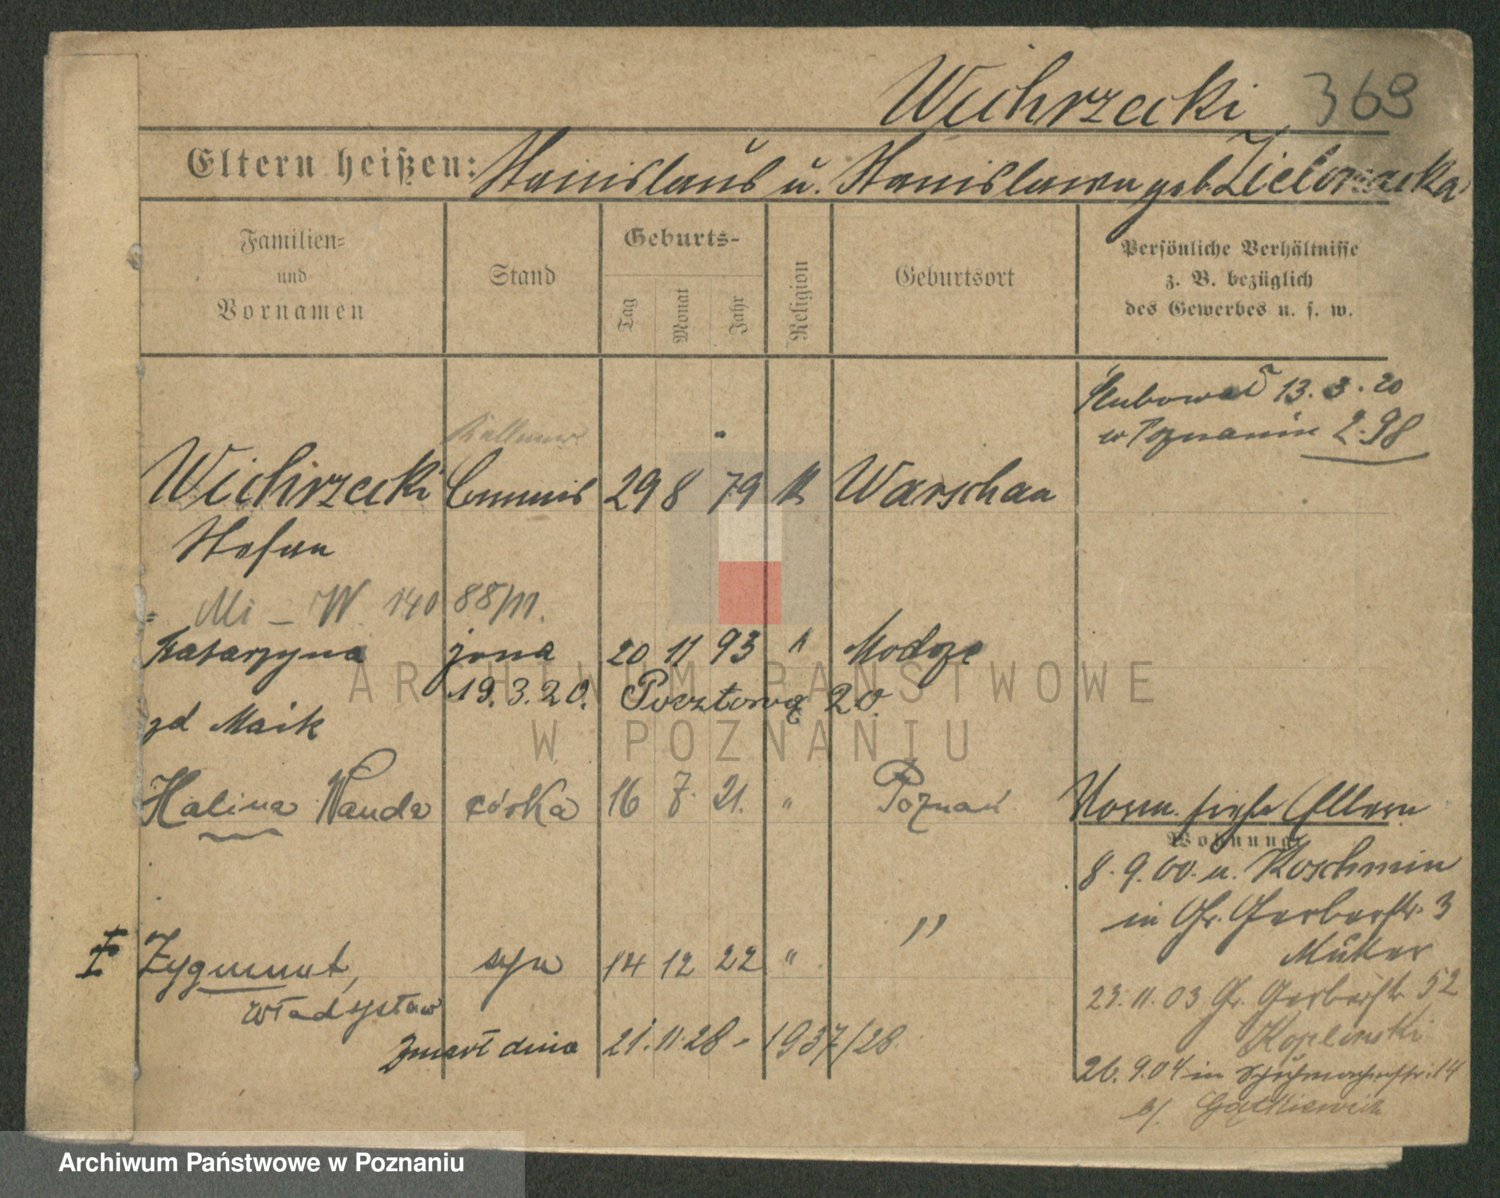 Wichrzecki 369
Eltern heißen: Stanislaus u. Stanislawa geb. Zielonacka
Familien- und Vornamen
Stand
Geburts-
Tag
Monat
Jahr
Religion
Geburtsort
Persönliche Verhältnisse
z. B. bezüglich
des Gewerbes u. s. w.
Ślubował 13.3.20
w Poznaniu 2.98
Wichrzecki Commis 29 8 79 k Warschau
Stefan
Mi - W. 140 88/11.
Katarzyna żona 20 11 93 k
19.3.20. Pocztowa 20.
zd Maik
Halina Wanda córka 16 7. 21. " Poznań
Vorm. siehe Eltern
Wohnung:
8.9.00. u. Koschmin
in Gr. Gerberstr. 3
Zygmunt, syn 14 12 22 " "
Władysław
23.11.03 Gr. Gerberstr. 52
zmarł dnia 21.11.28 - 1937/28.
26.9.04 in Schuhmacherstr. 14
b/.
ARCHIWUM PAŃSTWOWE
W POZNANIU
Archiwum Państwowe w Poznaniu